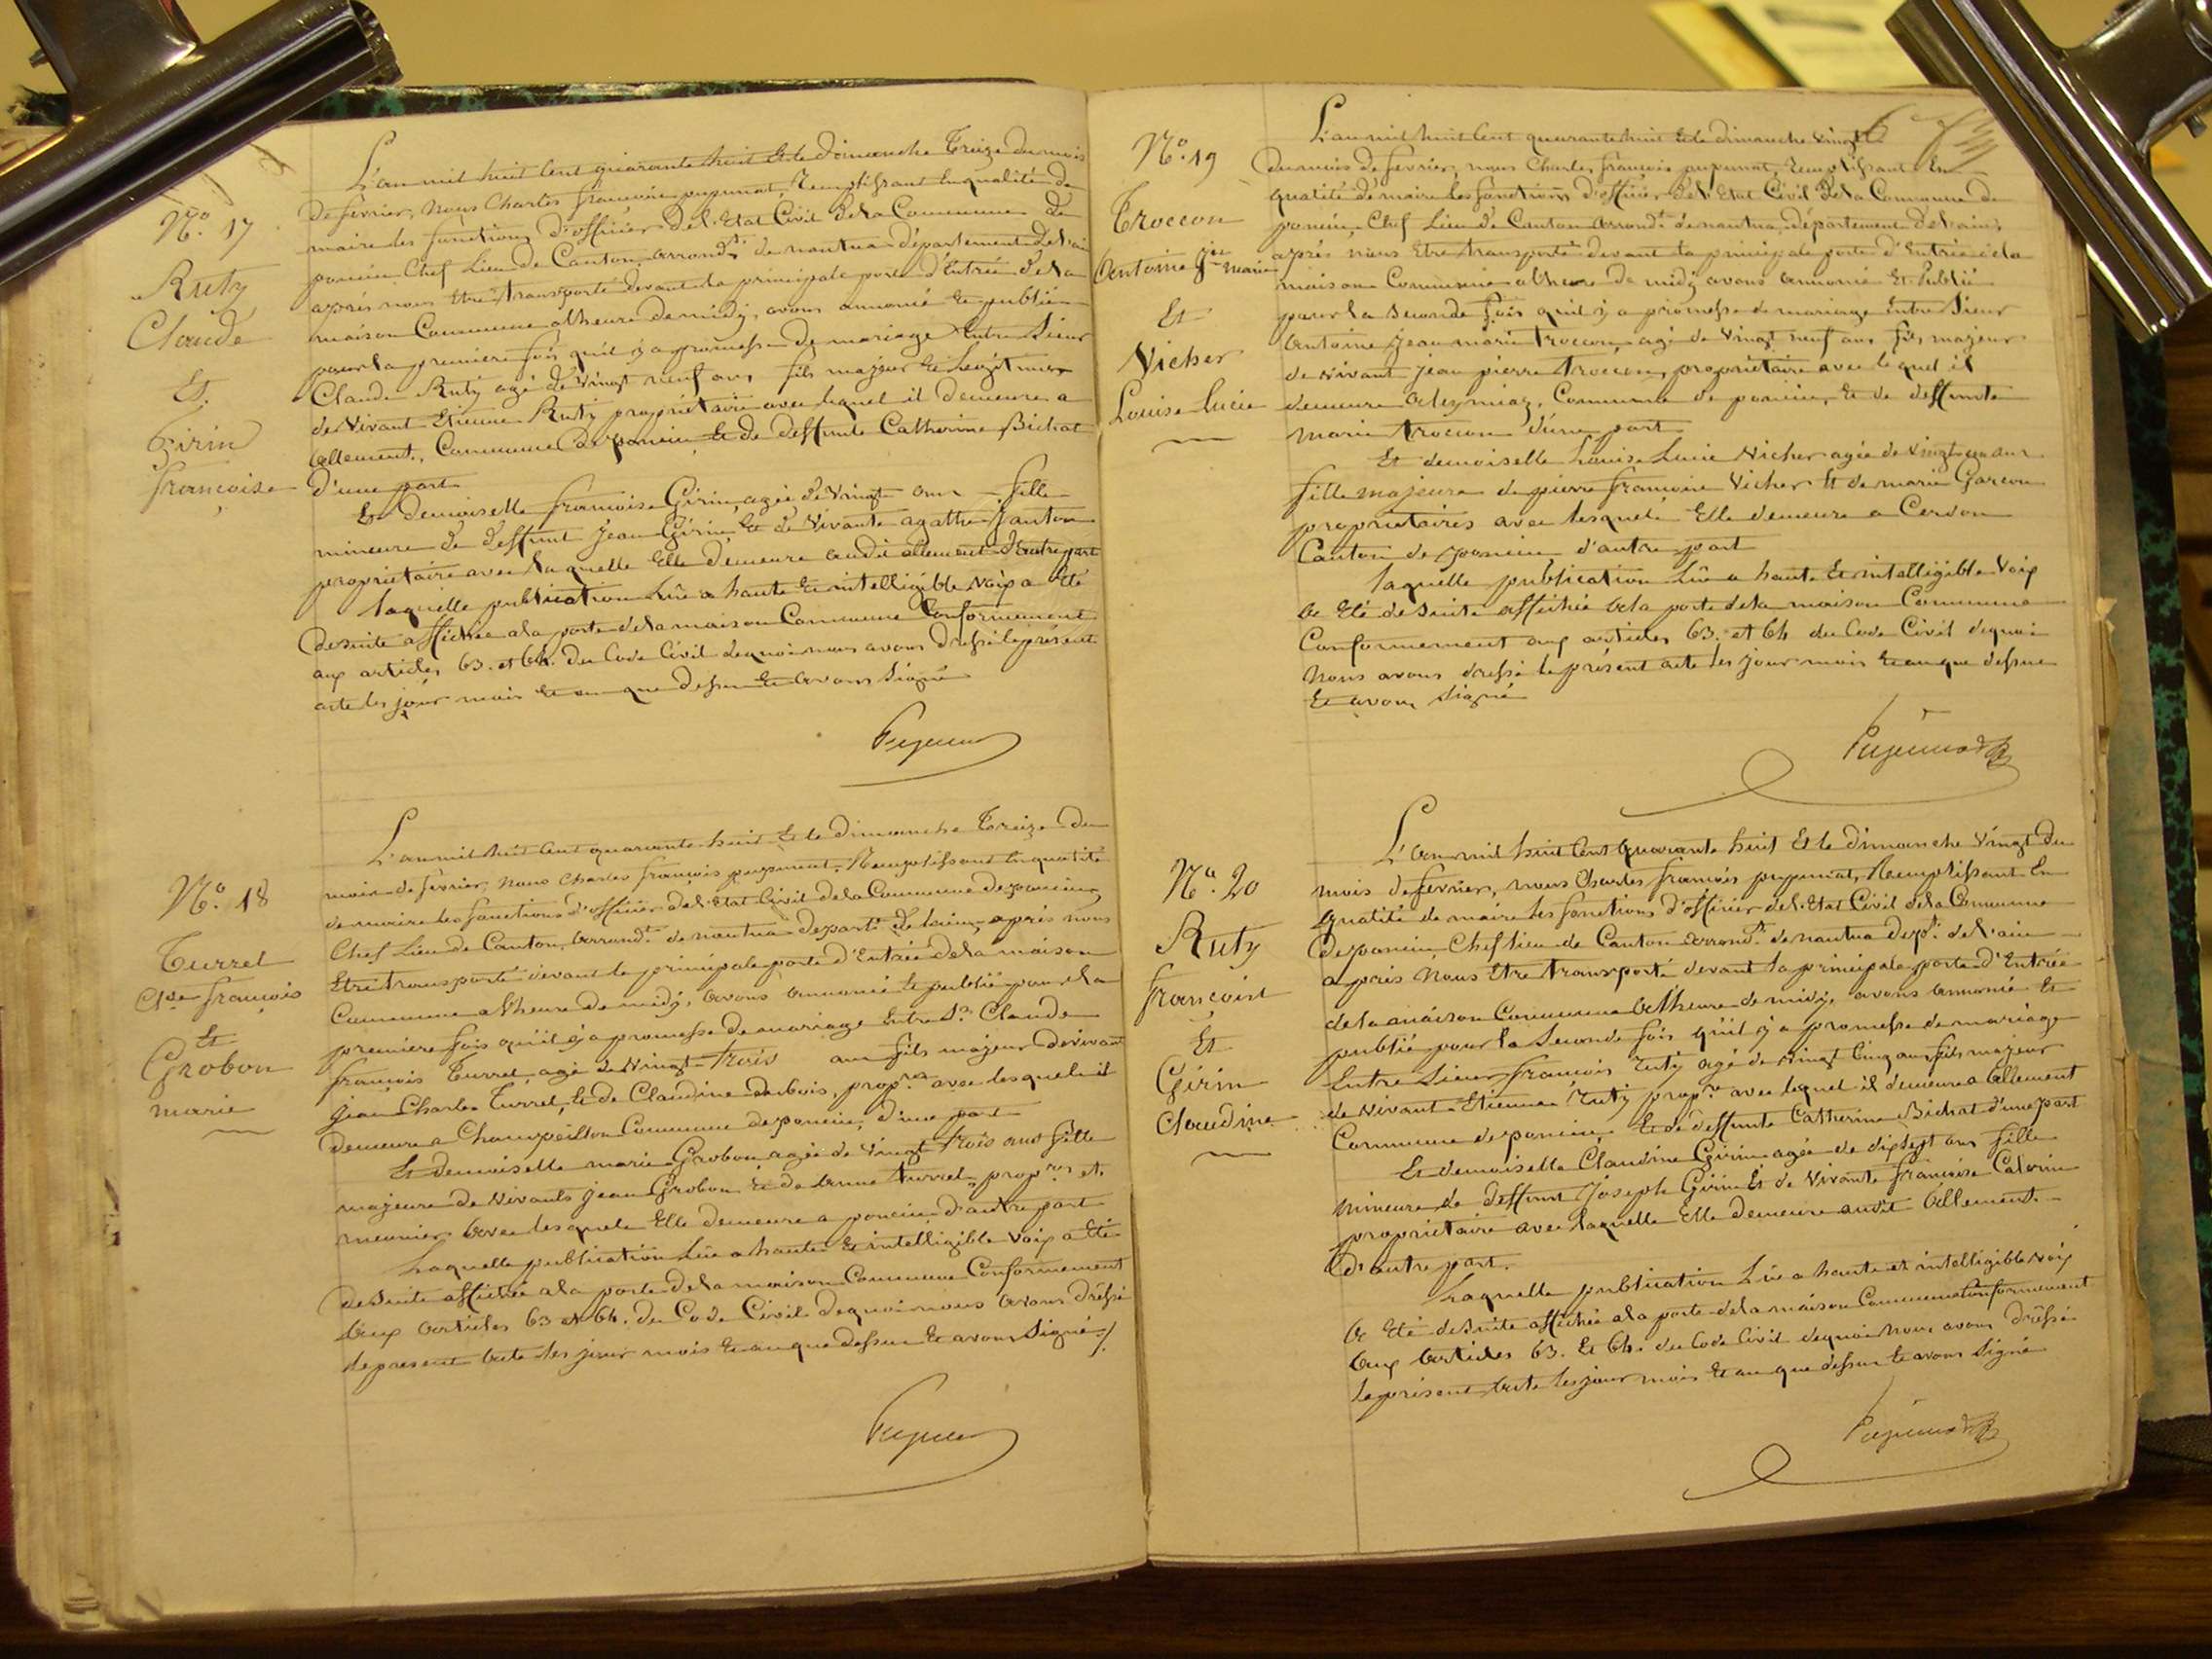 N.o 17
Ruty
Claude
Et
Girin
françoise
L'an mil huit Cent quarante huit Et le dimanche Treize du mois
de fevrier, nous Charles françois pupunat, Remplissant En qualité de
maire les fonctions d'officier de l'Etat Civil de la Commune de
poncin Chef Lieu de Canton, arrondt. de nantua département de l'ain
après nous Etre transporté devant la principale porte d'Entrée de la
maison Commune a l'heure de midy, avons annoncé Et publié
pour la premiere fois qu'il y a promesse de mariage Entre Sieur
Claude Ruty agé de vingt neuf ans fils majeur Et Legitime
de Vivant Etienne Ruty propriétaire avec lequel il demeure a
allement, Commune de poncin Et de deffunte Catherine Bichat
d'une part
Et Demoiselle françoise Girin, agée de vingt ans fille
mineure de deffunt Jean Girin, Et de Vivante agathe Janton
propriétaire avec laquelle Elle demeure au dit allement d'autre part
laquelle publication Lûe a haute Et intelligible voix a Eté
de suite affichée a la porte de la maison Commune Conformement
aux articles 63. et 64. du Code Civil de quoi nous avons dressé le présent
acte les jour mois Et an que dessus Et avons Signé
N.o 18
Turrel
Cde françois
Et
Grobon
marie
L'an mil huit Cent quarante huit Et le dimanche Treize du
mois de fevrier, nous Charles françois pupunat, Remplissant En qualité
de maire les fonctions d'officier de l'Etat Civil de la Commune de poncin
Chef Lieu de Canton, arrondt. de nantua departt. de l'ain, après nous
Etre transporté devant la principale porte d'Entrée de la maison
Commune a l'heure de midy, avons annoncé Et publié pour la
premiere fois qu'il y a promesse de mariage Entre Sr. Claude
françois Turrel agé de vingt trois ans fils majeur de vivant
Jean Charles Turrel, Et de Claudine dubois, propres avec lesquels il
demeure a Champeillon Commune de poncin, d'une part
Et demoiselle marie Grobon agée de vingt trois ans fille
majeure de vivants Jean Grobon Et de anne turrel, propres et
meunier avec lesquels Elle demeure a poncin d'autre part
Laquelle publication Lûe a haute Et intelligible voix a Eté
de suite affichée a la porte de la maison Commune Conformement
aux articles 63 et 64. du Code Civil de quoi nous avons dréssé
le present acte les jour mois Et an que dessus Et avons Signé ./.
N.o 19
Troccon
Antoine Jean marie
Et
Vicher
Louise Lucie
L'an mil huit Cent quarante huit Et le dimanche vingt
du mois de fevrier, nous Charles françois pupunat, Remplissant En
qualité de maire les fonctions d'officier de l'Etat Civil de la Commune de
poncin, Chef Lieu de Canton arrondt. de nantua, département de l'ain,
après nous Etre transporté devant la principale porte d'Entrée de la
maison Commune a l'heure de midy avons annoncé Et Publié
pour la seconde fois qu'il y a promesse de mariage Entre Sieur
Antoine Jean marie Troccon, agé de vingt neuf ans fils majeur
de vivant Jean pierre Troccon, propriétaire avec lequel il
demeure a leymiaz, Commune de poncin, Et de deffunte
marie Troccon d'une part
Et demoiselle Louise Lucie Vicher agée de vingt un ans
fille majeure de pierre françois Vicher Et de marie Garcon
propriétaires avec lesquels Elle demeure a Cerdon
Canton de poncin d'autre part
laquelle publication Lûe a haute Et intelligible voix
a Eté de suite affichée a la porte de la maison Commune
Conformement aux articles 63. et 64 du Code Civil de quoi
Nous avons dréssé le présent acte les jour mois Et an que dessus
Et avons signé
Pupunat
N.o 20
Ruty
françois
Et
Girin
Claudine
L'an mil huit Cent quarante huit Et le dimanche vingt du
mois de fevrier, nous Charles françois pupunat, Remplissant En
qualité de maire les fonctions d'officier de l'Etat Civil de la Commune
de poncin, Chef lieu de Canton arrondt. de nantua dept. de l'ain
après nous Etre transporté devant la principale porte d'Entrée
de la maison Commune a l'heure de midy, avons annoncé Et
publié pour la Seconde fois qu'il y a promesse de mariage
Entre Sieur françois Ruty agé de vingt Cinq ans fils majeur
de vivant Etienne Ruty propre avec lequel il demeure a allement
Commune de poncin, Et de deffunte Catherine Bichat d'une part
Et demoiselle Claudine Girin agée de dix sept ans fille
mineure de deffunt Joseph Girin Et de Vivante françoise Calorin
propriétaire avec laquelle Elle demeure au dit allement.
d'autre part.
Laquelle publication Lûe a haute et intelligible voix
a Eté de suite affichée a la porte de la maison Commune Conformement
aux articles 63. Et 64. du Code Civil de quoi nous avons dréssé
le présent acte les jour mois Et an que dessus Et avons Signé
Pupunat